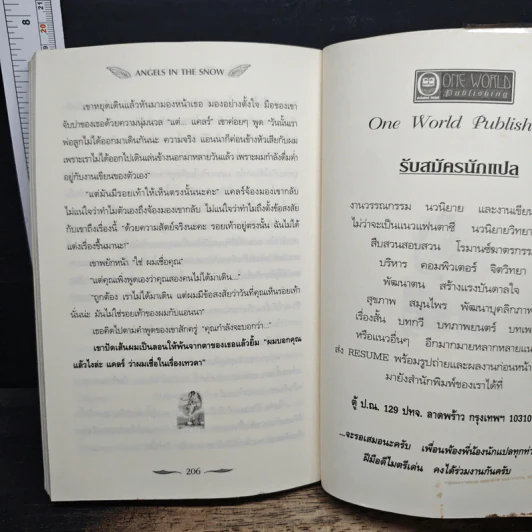 ANGELS IN THE SNOW
เขาหยุดเดินแล้วหันมามองหน้าเธอ มองอย่างตั้งใจ มือของเขา
จับบ่าของเธอด้วยความนุ่มนวล "แต่... แคลร์" เขาค่อยๆ พูด "วันนั้นเรา
พ่อลูกไม่ได้ออกมาเดินกันนะ ความจริง แอนนาก็ค่อนข้างหัวเสียกับผม
เพราะเราไม่ได้ออกไปเดินเล่นข้างนอกมาหลายวันแล้ว เพราะผมกำลังดื่มด่ำ
อยู่กับงานเขียนของตัวเอง"
"แต่มันมีรอยเท้าให้เห็นตรงนั้นนะคะ" แคลร์จ้องมองเขากลับ
ไม่แน่ใจว่าทำไมตัวเองถึงจ้องมองเขากลับ ไม่แน่ใจว่าทำไมถึงตั้งข้อสงสัย
กับเขาถึงเรื่องนี้ "ด้วยความสัตย์จริงนะคะ รอยเท้าอยู่ตรงนั้น ฉันไม่ได้
แต่งเรื่องขึ้นมานะ!"
เขาพยักหน้า "ใช่ ผมเชื่อคุณ"
"แต่คุณเพิ่งพูดเองว่าคุณสองคนไม่ได้มาเดิน..."
"ถูกต้อง เราไม่ได้มาเดิน แต่ผมมีข้อสงสัยว่าวันที่คุณเห็นรอยเท้า
นั่นน่ะ มันไม่ใช่รอยเท้าของผมกับแอนนา"
เธอคิดไปตามคำพูดของเขาสักครู่ "คุณกำลังจะบอกว่า..."
เขาปัดเส้นผมเป็นลอนให้พ้นจากตาของเธอแล้วยิ้ม "ผมบอกคุณ
แล้วไงล่ะ แคลร์ ว่าผมเชื่อในเรื่องเทวดา"
206
ONE WORLD
Publishing
One World Publish
รับสมัครนักแปล
งานวรรณกรรม นวนิยาย และงานเขียน
ไม่ว่าจะเป็นแนวแฟนตาซี นวนิยายวิทยา
สืบสวนสอบสวน โรมานซ์ฆาตกรรม
บริหาร คอมพิวเตอร์ จิตวิทยา
พัฒนาตน สร้างแรงบันดาลใจ
สุขภาพ สมุนไพร พัฒนาบุคลิกภาพ
เรื่องสั้น บทกวี บทภาพยนตร์ บทเพ
หรือแนวอื่นๆ อีกมากมายหลากหลายแน
ส่ง RESUME พร้อมรูปถ่ายและผลงานก่อนหน้า
มายังสำนักพิมพ์ของเราได้ที่
ตู้ ป.ณ. 129 ปทจ. ลาดพร้าว กรุงเทพฯ 10310
...จะรอเสมอนะครับ เพื่อนพ้องพี่น้องนักแปลทุกท่า
ฝีมือดีไมตรีเด่น คงได้ร่วมงานกันครับ